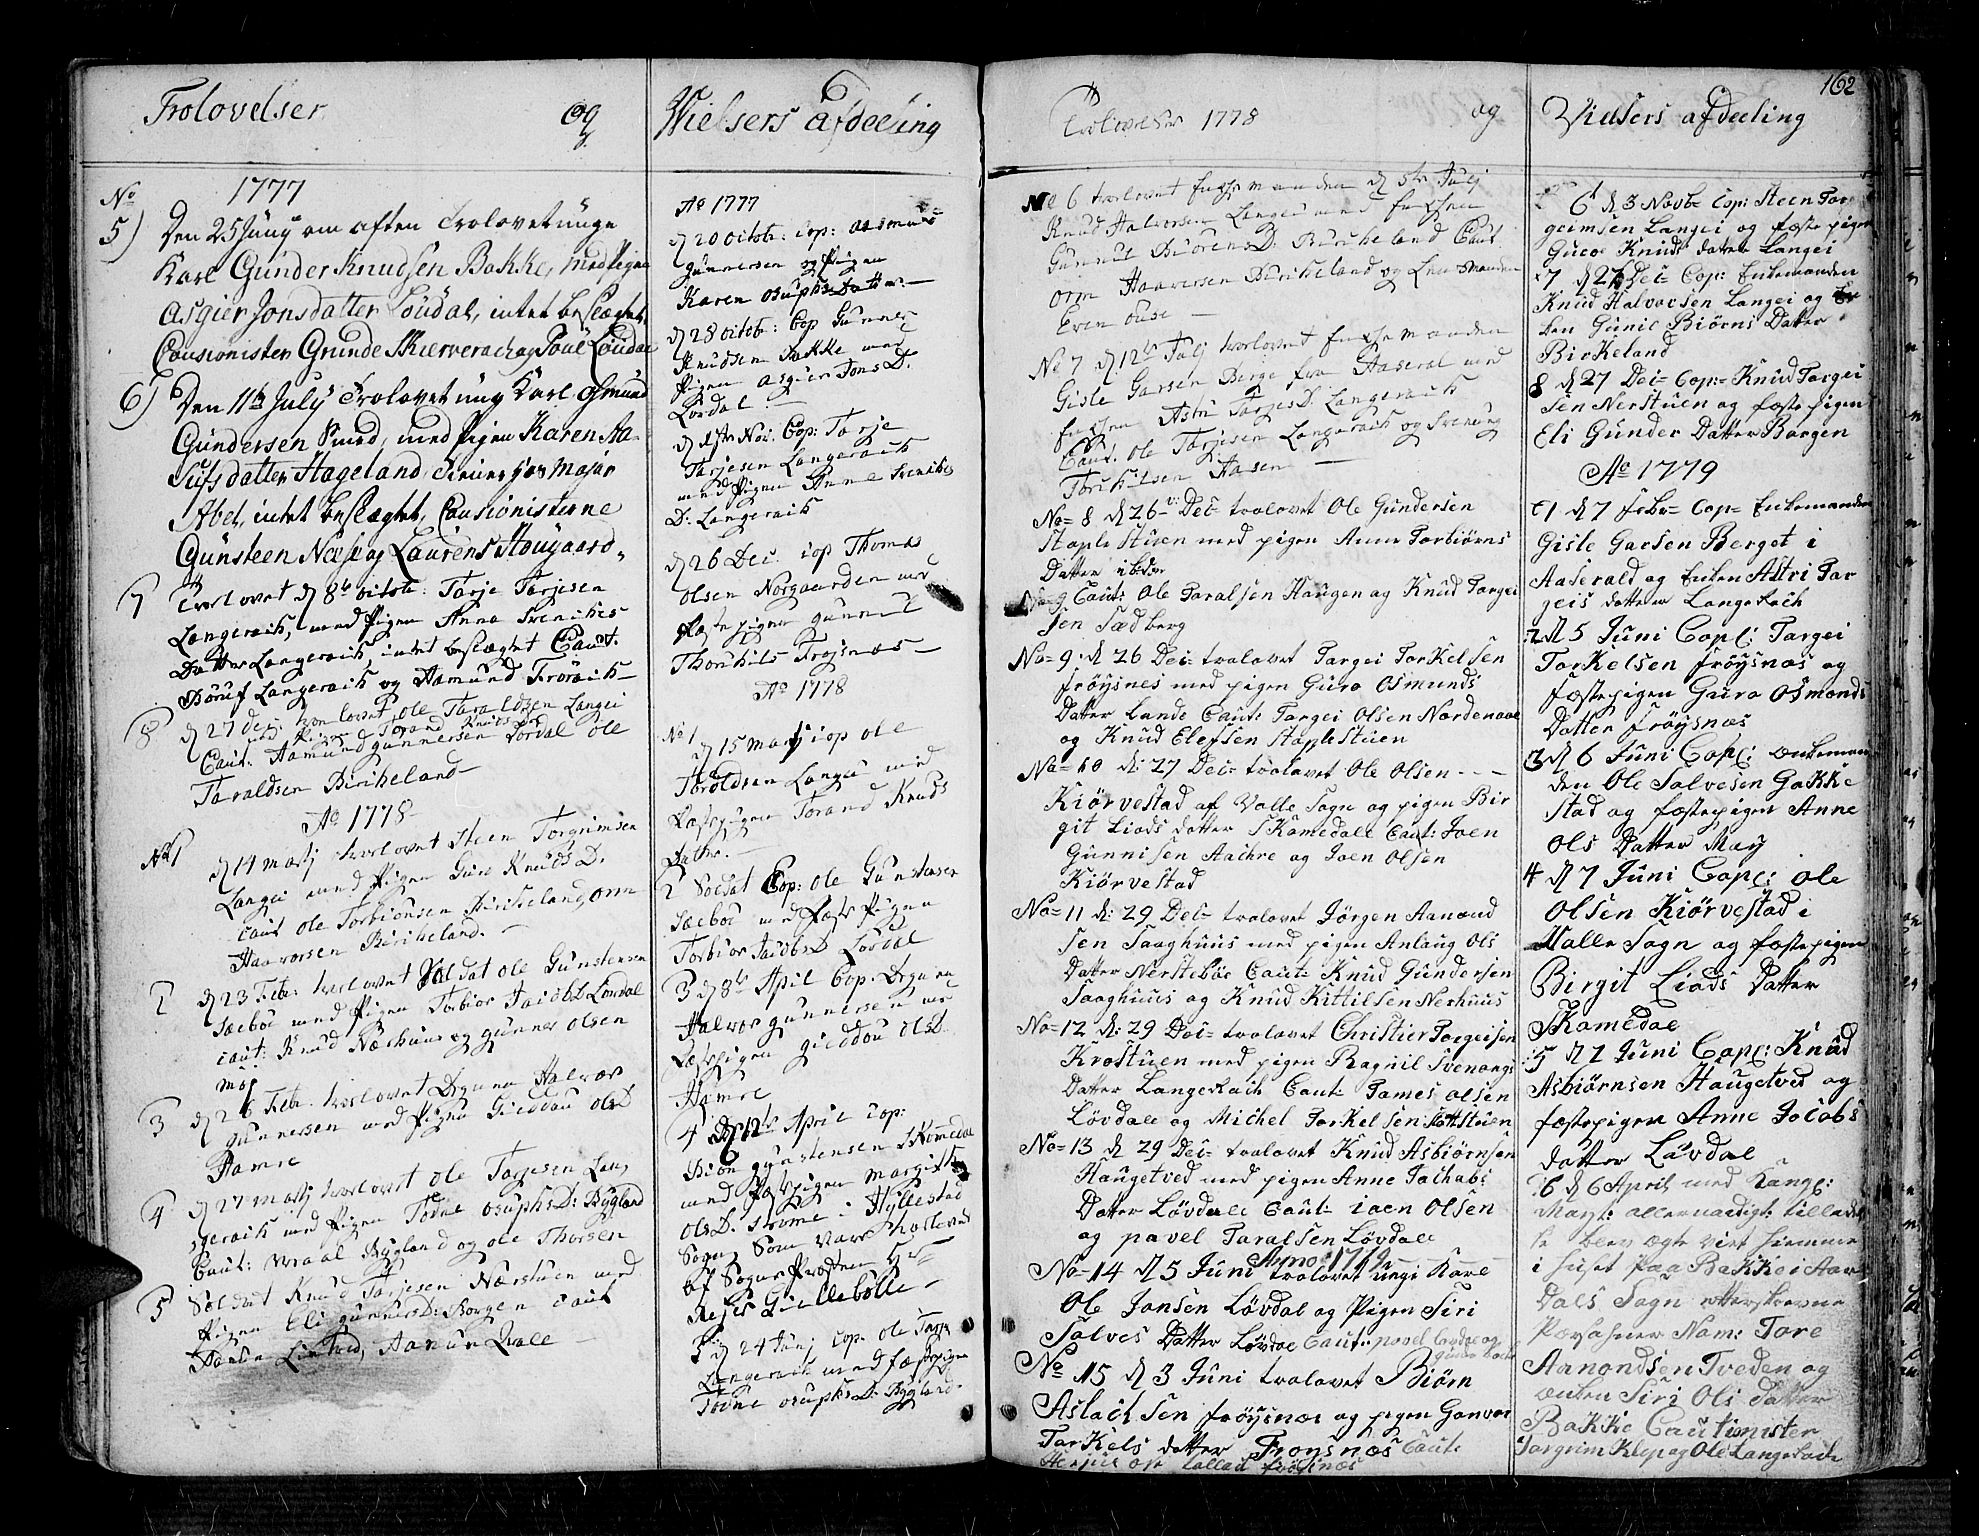 Trolovelser og
1777
No
5) Den 25 Juny om aften Trolovet unge
Karl Gunder Knudsen Bakke, med Pigen
Asgier Jonsdatter Loudal, intet beslægtet,
Causionister Grunde Skierverach og Poul Loudal
6) Den 11te July Trolovet ung Karl Osmund
Gundersen Smed, med Pigen Karen Aa-
sufsdatter Hageland tiener hos Major
Abel, intet beslægtet, Causionisterne
Gunsteen Næse og Laurens Hougaard
7 Trolovet d 8de octobr: Tarje Tarjesen
Langerach, med Pigen Anne Svenikes
Datter Langerach, intet beslægtet Caut:
Langerach og Aamund Frörach
8 d 27 Dec: trolovet Ole Taraldsen Langei
med Pigen Torand Knudsdatter
Caut: Aamund Gunnersen Lordal Ole
Taraldsen Birkeland
Ao 1778
No 1 d 14 Martj trolovet Steen Torgrimsen
Langei med Pigen Guro Knuds D.
Caut Ole Torbiönsen Birkeland, Orm
Haavorsen Birkeland.
2 d 23 Febr: trolovet Soldat Ole Gunstensen
Sæeboe med Pigen Torbior Jacobs D Lordal
Caut: Knud Næshuus og Gunner Olsen
Moi
3 d 26 Febr. trolovet Halvor
Gunnersen med Pigen Gieddou Ols D
Hamre
4 d 27 Martj trolovet Ole Tarjesen Lan-
gerach med Pigen Tovne Osuphs D: Bygland
Caut: Wraal Bygland og Ole Thorsen
5 Soldat Knud Tarjesen Nærstuen med
Pigen Eli Gunners D: Borgen Caut
Lintved, Aanun Qvale
Wielsers Afdeeling
Ao 1777
d 20 Octobr: Cop: Aasmund
Gunnersen og Pigen
Karen Osuphs Datter
d 28 Octobr: Cop Gunner
Knudsen Bakke med
Pigen Asgier Jons D.
Lördal
d 1ste Nov. Cop: Tarje
Tarjesen Langerach
med Pigen Anne Svenikes
D: Langerach
d 26 Dec: Cop Thomas
Olsen Norgaarden med
Fæstepigen Gunnul
Thorkils Frøjsnæs
Ao 1778
No 1 d 15 Martj Cop Ole
Taroldsen Langei med
Fæstepigen Torand Knuds
Datter.
2 Soldat Cop: Ole Gunstensen
Sæeboe med Fæste Pigen
Torbior Jacobs D Lovdal
3 d 8de April Cop.
Halvor Gunnersen med
Fæstepigen Gieddou Ols D
Hamre
4 d 12te April Cop:
Biön Gunstensen Skomedal
med Fæstepigen Margith
Ols D: i Hyllestad
Sogn, Som var trolovet
af Sogne Præsten Hr
Rejer Giellebölle
5 d 24 Junj Cop. Ole Tarjes.
Langerach med fæstepigen
Tovne Osuphs D: Bygland.
Trolovelser 1778 og
No 6 trolovet Enchemanden d 5te Julj
Knud Halvorsen Langei med Enchen
Gunnul Biörens D. Burcheland Caut
Orm Haaversen Burcheland og Lensmanden
Even Ouse
No 7 d 12te Julj trolovet Enchemanden
Gisle Garsen Berge fra Aaseral med
Enchen Astri Tarjes D. Langerach
Caut. Ole Tarjesen Langerach og Svenung
Torchilsen Aasen
No= 8 d 26 Dec= trolovet Ole Gundersen
Staplestuen med pigen Anne Torbiörns
Datter ibidem
Caut: Ole Taralsen Haugen og Knud Targei
sen Sædberg
No= 9 d: 26 Dec= trolovet Targei Torkelsen
Frøysnes med pigen Guro Osmunds
Datter Lande Caut: Targei Olsen Nordenaae
og Knud Elefsen Staplestuen
No= 10 d: 27 Dec= trolovet Ole Olsen
Kiörvestad af Valle Sogn og pigen Bir
git Liods datter Skomedale Caut: Joen
Gunnisen Aachre og Joen Olsen
Kiörvestad
No= 11 d: 29 Dec= trolovet Jörgen Aanond
sen Saaghuus med pigen Anlaug Ols
Datter Nerstebøe Caut: Knud Gundersen
Saaghuus og Knud Kittilsen Neshuus
No= 12 d: 29 Dec= trolovet Christier Torgeisen
Krostuen med pigen Ragnil Svenungs
Datter Langerach Caut: Tames Olsen
Lövdale og Michel Torkelsen
No= 13 d 29 Dec= trolovet Knud Asbiörnsen
Haugetved med pigen Anne Jachobs
Datter Lövdale Caut: Joen Olsen
og Pavel Taralsen Lövdale
Anno 1779
No= 14 d 5 Juni trolovet ungi Karl
Ole Jonsen Lövdal og Pigen Siri
Salves Datter Lövdal Caut: Povel Lövdal og
No 15 d 3 Juni trolovet Biörn
Aslachsen Frøysnæs og pigen Gonvor
Torkels datter Froysnæs Caut:
Tallad Frøysnæs
162
Vielsers afdeeling
6 d 3 Novb= Cop: Steen Tor
geimsen Langei og Fæste pigen
Guro Knuds datter Langei
7 d 27 Dec= Cop: Enkemanden
Knud Halvorsen Langei og En
ken Gunil Biörns Datter
Birkeland
8 d 27 Dec= Cop:= Knud Targei
sen Nerstuen og fæste Pigen
Eli Gunder Datter Borgen
Ao 1779
1 d 7 Febr= Cop= Enkemanden
Gisle Garsen Berget i
Aaserald og Enken Astri Tar
geis datter Langerach
2 d 5 Juni Copl: Targei
Torkelsen Frøysnæs og
fæstepigen Guro Osmonds
Datter Frøysnæs
3 d 6 Juni Copl: enkeman
den Ole Salvesen Gakke
stad og fæstepigen Anne
Ols Datter May
4 d 7 Juni Copl: Ole
Olsen Kiörvestad i
Valle Sogn og fæstepigen
Birgit Liods Datter
Skomedal
5 d 7 Juni Copl: Knud
Asbiörnsen Haugetved og
fæstepigen Anne Jocobs
datter Lövdal
6 d 6 April med Kongl:
Mayt: allernaadigst tillad
te blev ægte viet hiemme
i huset paa Bakke i Aar
dals Sogn efterskrevne
Persohner Nam: Tore
Aanondsen Tveden og
enken Siri Ols datter
Bakke Cautionister
Torgrim Klep og Ole Langerach